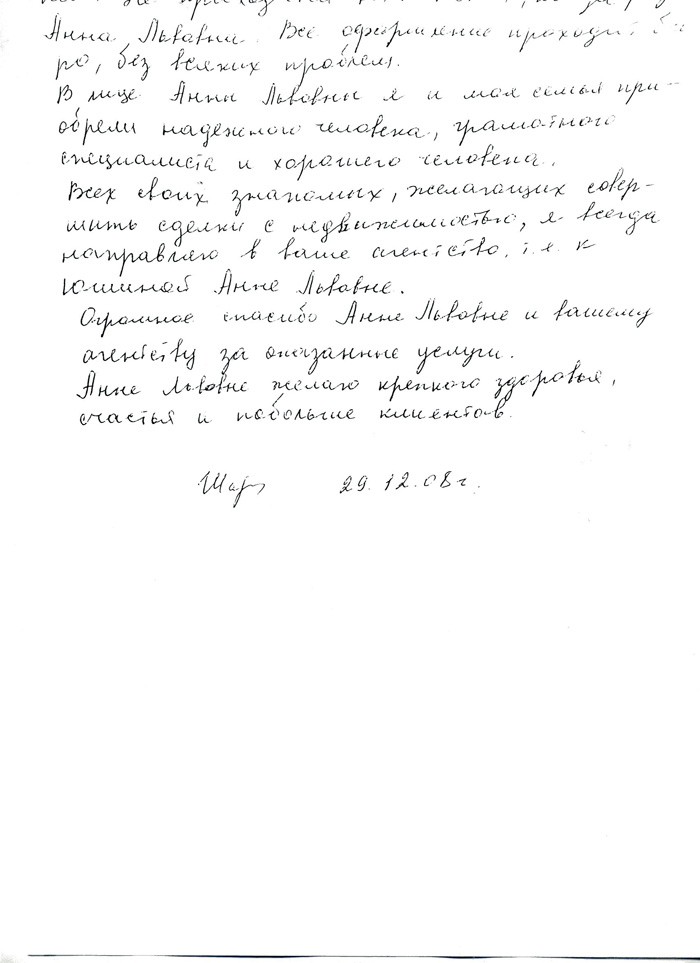 Анна Львовна. Все оформление проходит
ро, без всяких проблем.
В лице Анны Львовны я и моя семья при-
обрели надежного человека, грамотного
специалиста и хорошего человека.
Всех своих знакомых, желающих совер-
шить сделки с недвижимостью, я всегда
направляю в ваше агентство, т.е. к
Юшиной Анне Львовне.
Огромное спасибо Анне Львовне и вашему
агентству за оказанные услуги.
Анне Львовне желаю крепкого здоровья,
счастья и побольше клиентов.
29.12.08г.